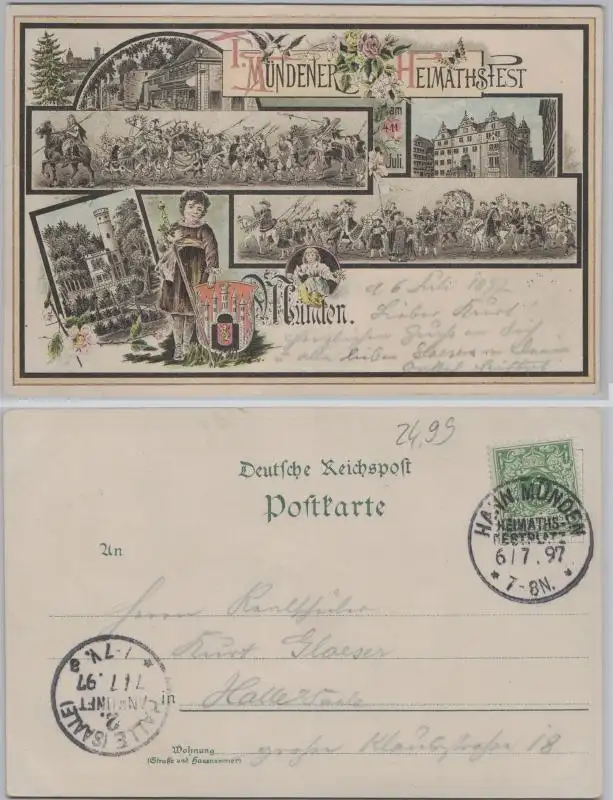 I. MÜNDENER HEIMATHSFEST
am
4.11
Juli.
Münden.
d 6 Juli 1897
Lieber Kurt!
24,99
Deutsche Reichspost
Postkarte
HANN. MÜNDEN
HEIMATHS-
FESTPLATZ
6/7.97
* 7-8N. *
An
Herrn Realschüler
Kurt Glaeser
in Halle Saale
große Klausstraße 18
Wohnung
(Straße und Hausnummer)
HALLE (SAALE)
2.
ANKUNFT
7/7.97